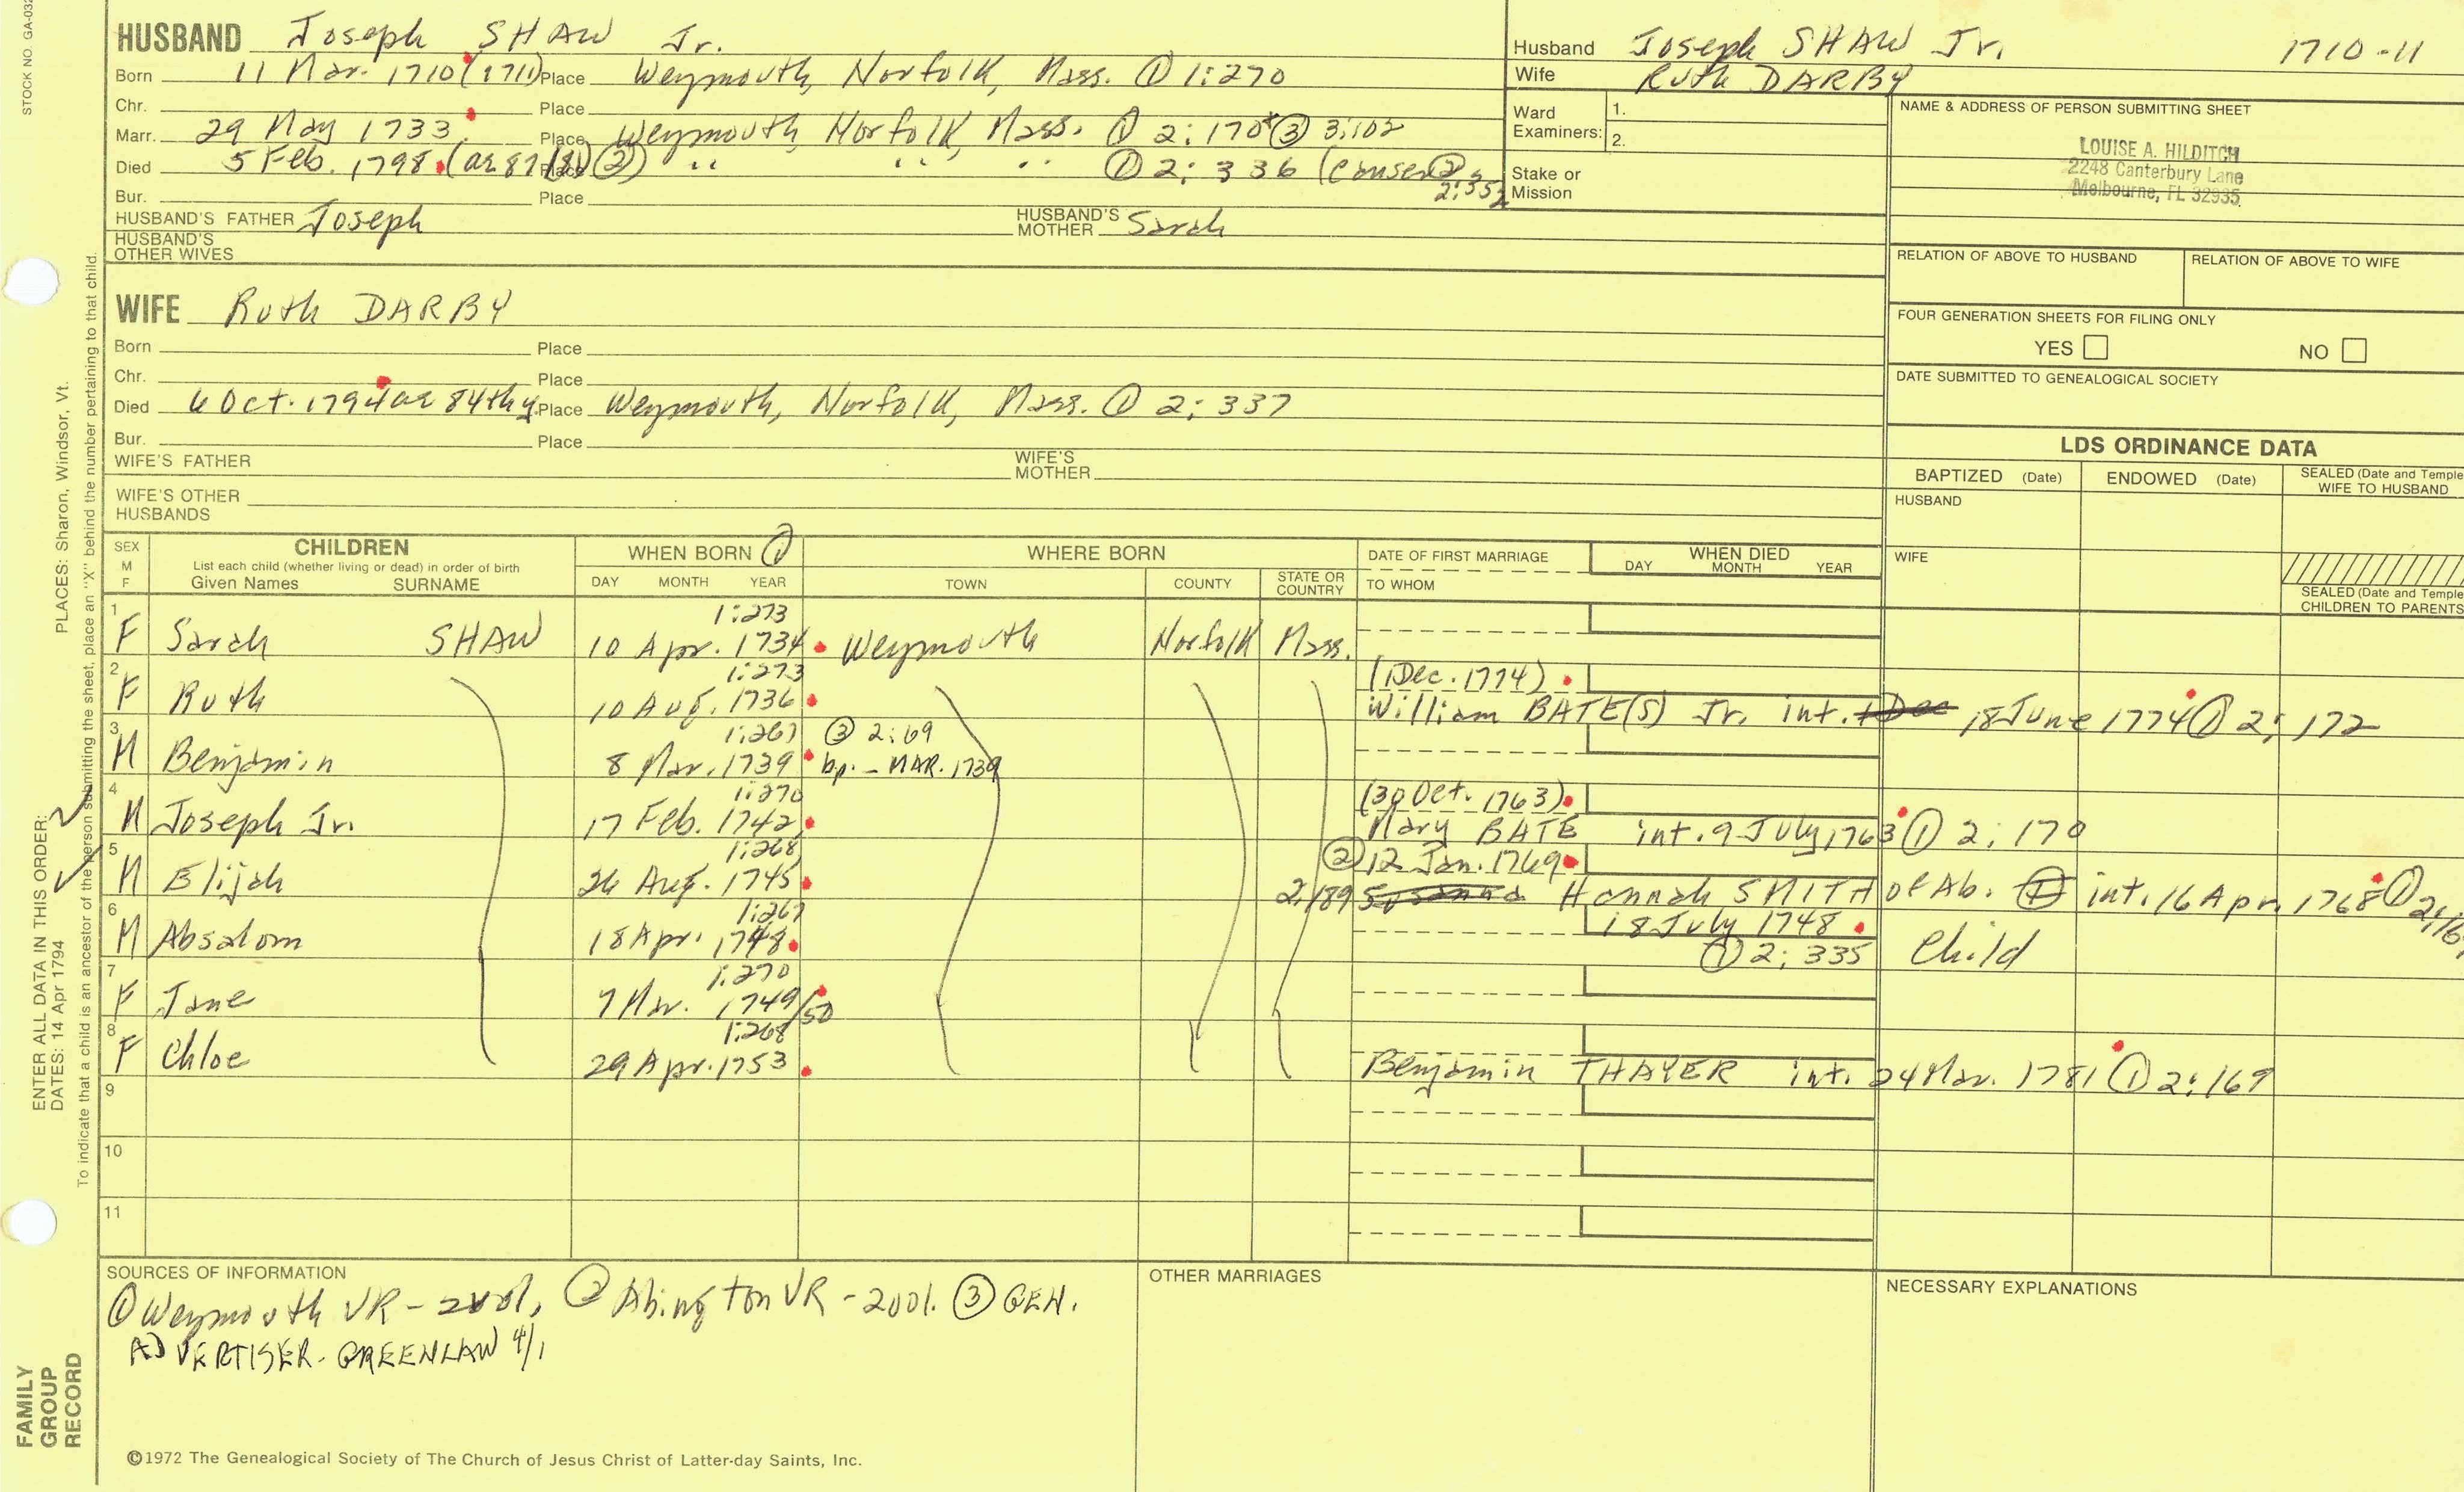 STOCK NO. GA-032
HUSBAND Joseph SHAW Jr.
Born 11 Mar. 1710 (1711) Place Weymouth, Norfolk, Mass. ① 1:270
Chr. Place
Marr. 29 May 1733 Place Weymouth, Norfolk, Mass. ① 2:170 ③ 3:102
Died 5 Feb. 1798 (ae 87 Place ② " " " ① 2:336 (Cause ②
2:352
Bur. Place
HUSBAND'S FATHER Joseph HUSBAND'S MOTHER Sarah
HUSBAND'S OTHER WIVES
WIFE Ruth DARBY
Born Place
Chr. Place
Died 6 Oct. 1794 ae 84th y. Place Weymouth, Norfolk, Mass. ① 2:337
Bur. Place
WIFE'S FATHER WIFE'S MOTHER
WIFE'S OTHER HUSBANDS
Husband Joseph SHAW Jr. 1710-11
Wife Ruth DARBY
Ward Examiners: 1.
2.
Stake or Mission
NAME & ADDRESS OF PERSON SUBMITTING SHEET
LOUISE A. HILDITCH
2248 Canterbury Lane
Melbourne, FL 32935
RELATION OF ABOVE TO HUSBAND RELATION OF ABOVE TO WIFE
FOUR GENERATION SHEETS FOR FILING ONLY
YES NO
DATE SUBMITTED TO GENEALOGICAL SOCIETY
LDS ORDINANCE DATA
BAPTIZED (Date) ENDOWED (Date) SEALED (Date and Temple
WIFE TO HUSBAND
HUSBAND
WIFE
SEALED (Date and Temple
CHILDREN TO PARENTS
SEX M F CHILDREN
List each child (whether living or dead) in order of birth
Given Names SURNAME
WHEN BORN ①
DAY MONTH YEAR
WHERE BORN
TOWN COUNTY STATE OR COUNTRY
DATE OF FIRST MARRIAGE
TO WHOM
WHEN DIED
DAY MONTH YEAR
1:273
1 F Sarah SHAW 10 Apr. 1734 Weymouth Norfolk Mass.
1:273 (1 Dec. 1774)
2 F Ruth 10 Aug. 1736 William BATE(S) Jr. int. 1 Dec 18 June 1774 ① 2:172
1:267 ③ 2:69
3 M Benjamin 8 Mar. 1739 bp. - MAR. 1739
1:270 (30 Oct. 1763)
4 M Joseph Jr. 17 Feb. 1742 Mary BATE int. 9 July 1763 ① 2:170
1:268 ② 12 Jan. 1769
5 M Elijah 26 Aug. 1745 2:189 Susanna Hannah SMITH of Ab. ① int. 16 Apr. 1768 ① 2:16
1:267 18 July 1748
6 M Absalom 18 Apr. 1748 ① 2:335 Child
1:270
7 F Jane 7 Mar. 1749/50
1:268
8 F Chloe 29 Apr. 1753 Benjamin THAYER int. 24 Mar. 1781 ① 2:169
9
10
11
SOURCES OF INFORMATION
① Weymouth VR - 2 vol, ② Abington VR - 2 vol. ③ GEN.
ADVERTISER - GREENLAW 4/1
OTHER MARRIAGES
NECESSARY EXPLANATIONS
©1972 The Genealogical Society of The Church of Jesus Christ of Latter-day Saints, Inc.
FAMILY GROUP RECORD
ENTER ALL DATA IN THIS ORDER:
DATES: 14 Apr 1794
PLACES: Sharon, Windsor, Vt.
To indicate that a child is an ancestor of the person submitting the sheet, place an "X" behind the number pertaining to that child.